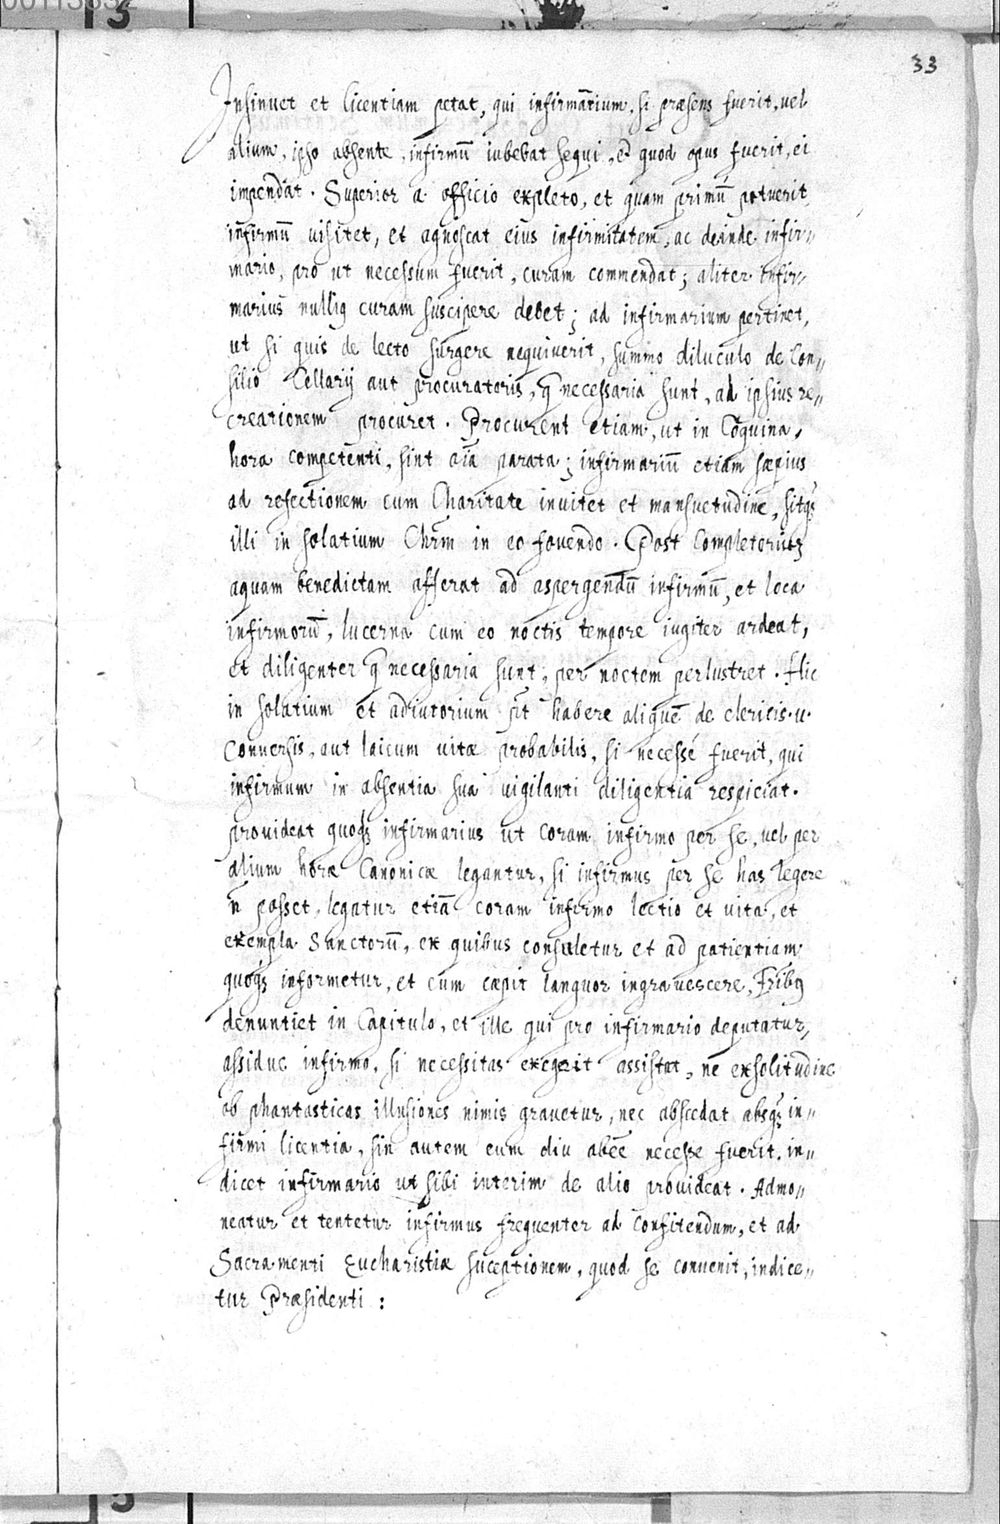 33
Insinuet et licentiam petat, qui infirmarium, si præsens fuerit, vel
alium, ipso absente, infirmū iubebat sequi, et quod opus fuerit, ei
impendat. Superior a officio expleto, et quam primū potuerit
infirmū visitet, et agnoscat eius infirmitatem, ac deinde infir„
mario, pro ut necessum fuerit, curam commendat; aliter infir„
marius nulliꝰ curam suscipere debet; ad infirmarium pertinet,
ut si quis de lecto surgere nequiverit, summo diluculo de Con„
silio Cellarij aut procuratoris, q̄ necessaria sunt, ad ipsius re„
creationem procuret. Procurent etiam, ut in Coquina,
hora competenti, sint oīa parata; infirmariū etiam sæpius
ad refectionem cum Charitate invitet et mansuetudine, sitqꝫ
illi in solatium Chrm in eo fovendo. Post Completoriūꝫ
aquam benedictam afferat ad aspergendū infirmū, et loca
infirmorū, lucerna cum eo noctis tempore iugiter ardeat,
et diligenter q̄ necessaria sunt, per noctem perlustret. Hic
in solatium et adiutorium sit habere aliquē de clericis. u.
Conversis, aut laicum vitæ probabilis, si necessé fuerit, qui
infirmum in absentia sua vigilanti diligentia respiciat.
provideat quoqꝫ infirmarius ut coram infirmo per se, vel per
alium horæ Canonicæ legantur, si infirmus per se has legere
n̄ posset, legatur etiā coram infirmo lectio et vita, et
exempla Sanctorū, ex quibus consuletur et ad patientiam
quoqꝫ informetur, et cum cæpit languor ingravescere, Frībꝰ
denuntiet in Capitulo, et ille qui pro infirmario deputatur,
assidue infirmo, si necessitas exegerit assistat, ne ex solitudine
ob phantasticas illusiones nimis gravetur, nec abscedat absqꝫ in„
firmi licentia, sin autem eum diu abēe necesse fuerit, in„
dicet infirmario ut sibi interim de alio provideat. Admo„
neatur et tentetur infirmus frequenter ad Confitendum, et ad
Sacramenti Eucharistiæ suceptionem, quod se convenit, indice„
tur Præsidenti: